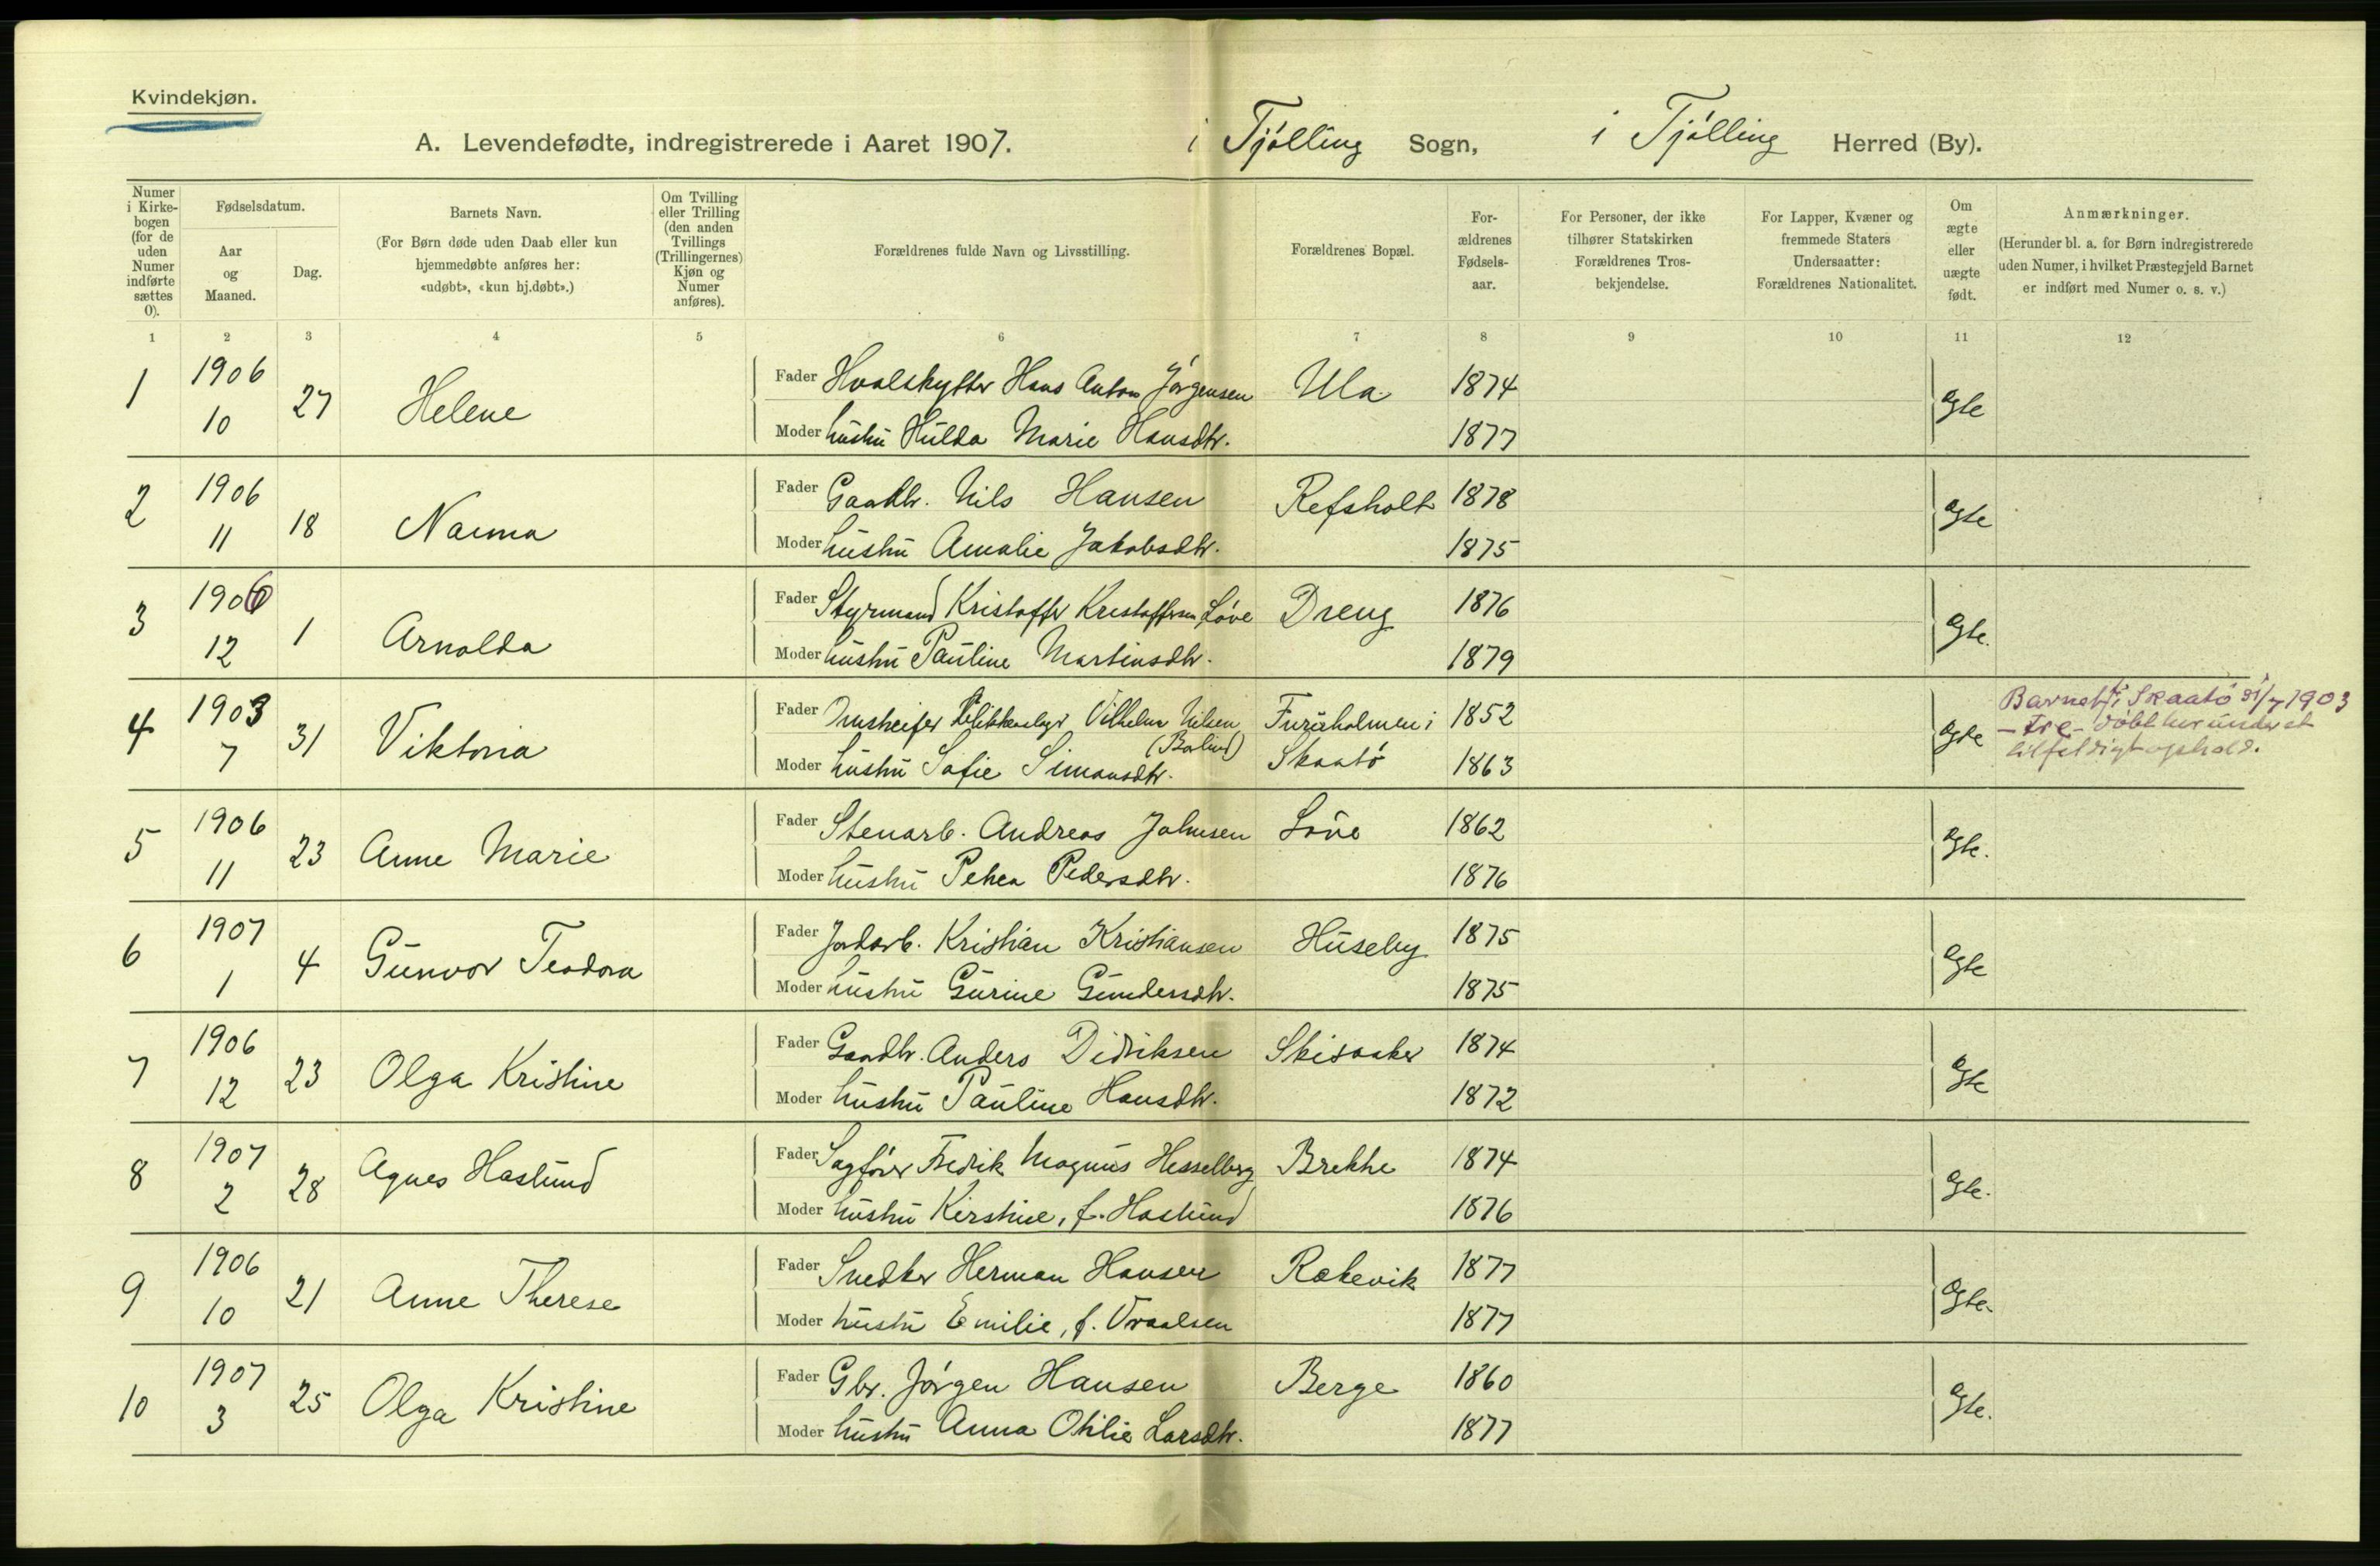 Kvindekjøn.
A. Levendefødte, indregistrerede i Aaret 1907. i Tjölling Sogn, i Tjölling Herred (By).
Numer i Kirkebogen (for de uden Numer indførte sættes 0).
Fødselsdatum.
Aar og Maaned.
Dag.
Barnets Navn.
(For Børn døde uden Daab eller kun hjemmedøbte anføres her: «udøbt», «kun hj.døbt».)
Om Tvilling eller Trilling (den anden Tvillings (Trillingernes) Kjøn og Numer anføres).
Forældrenes fulde Navn og Livsstilling.
Forældrenes Bopæl.
For-ældrenes Fødsels-aar.
For Personer, der ikke tilhører Statskirken Forældrenes Tros-bekjendelse.
For Lapper, Kvæner og fremmede Staters Undersaatter: Forældrenes Nationalitet.
Om ægte eller uægte født.
Anmærkninger.
(Herunder bl. a. for Børn indregistrerede uden Numer, i hvilket Præstegjeld Barnet er indført med Numer o. s. v.)
1 2 3 4 5 6 7 8 9 10 11 12
1 1906 10 27 Helene Fader Hvalskytter Hans Anton Jörgensen Ula 1874 ægte
Moder hustru Hulda Marie Hansdtr. 1877
2 1906 11 18 Naima Fader Gaardbr. Nils Hansen Refsholt 1878 ægte
Moder hustru Amalie Jakobsdtr. 1875
3 1906 12 1 Arnolda Fader Styrmand Kristoffer Kristoffersen Löve Dreng 1876 ægte.
Moder hustru Pauline Martinsdtr. 1879
4 1903 7 31 Viktoria Fader Omstreifer Blikkenslager Vilhelm Nilsen Furuholmen i 1852 ægte
(Borlind)
Moder hustru Sofie Simonsdtr. Skaatö 1863
Barnet f. i Skaatö 31/7 1903
- tre - döbt her under et
tilfældigt ophold.
5 1906 11 23 Anne Marie Fader Stenarb. Andreas Johnsen Löve 1862 ægte.
Moder hustru Petrea Pedersdtr. 1876
6 1907 1 4 Gunvor Teodora Fader Jordarb. Kristian Kristiansen Huseby 1875 ægte
Moder hustru Gurine Gundersdtr. 1875
7 1906 12 23 Olga Kristine Fader Gaardbr. Anders Didriksen Skisaaker 1874 ægte
Moder hustru Pauline Hansdtr. 1872
8 1907 2 28 Agnes Haslund Fader Sagförer Fredrik Magnus Hesselberg Brekke 1874 ægte.
Moder hustru Kirstine, f. Haslund 1876
9 1906 10 21 Anne Therese Fader Snedker Herman Hansen Rækevik 1877 ægte.
Moder hustru Emilie, f. Vraalsen 1877
10 1907 3 25 Olga Kristine Fader Gbr. Jörgen Hansen Berge 1860 ægte.
Moder hustru Anna Otilie Larsdtr. 1877